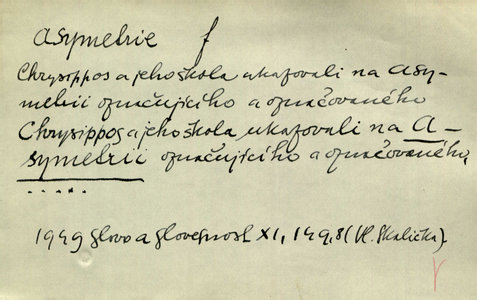 asymetrie f
Chrysippos a jeho škola ukazovali na asy-
metrii označujícího a označovaného
Chrysippos a jeho škola ukazovali na a-
symetrii označujícího a označovaného.
.....
1949 Slovo a slovesnost XI, 149, 8 (Vl. Skalička)